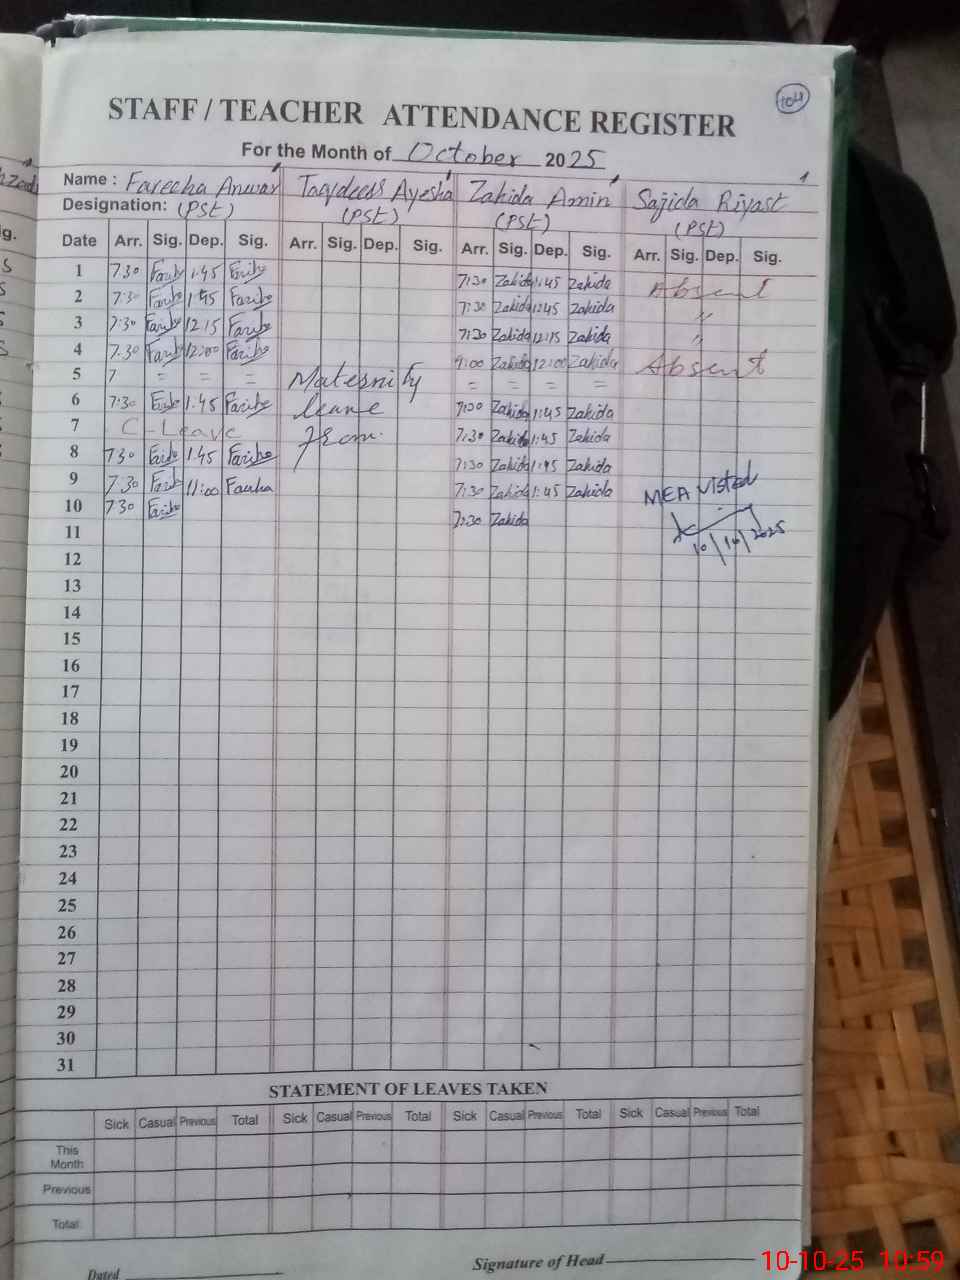 104
STAFF / TEACHER ATTENDANCE REGISTER
For the Month of October 2025
Name : Fareeha Anwar Taqdees Ayesha Zahida Amin Sajida Riyast
Designation: (PST) (PST) (PST) (PST)
Date Arr. Sig. Dep. Sig. Arr. Sig. Dep. Sig. Arr. Sig. Dep. Sig. Arr. Sig. Dep. Sig.
1 7:30 1:45 7:30 Zahida 1:45 Zahida Absent
2 7:30 1:45 7:30 Zahida 12:45 Zahida "
3 7:30 12:15 7:30 Zahida 12:15 Zahida "
4 7:30 12:00 9:00 Zahida 12:00 Zahida Absent
5 = = = Maternity = = = =
6 7:30 1:45 leave Zahida 1:45 Zahida
7 C-Leave from 7:30 Zahida 1:45 Zahida
8 7:30 1:45 7:30 Zahida 1:45 Zahida
9 7:30 11:00 Fareeha 7:30 Zahida 1:45 Zahida MEA Visted
10 7:30 7:30 Zahida 10/10/2025
11
12
13
14
15
16
17
18
19
20
21
22
23
24
25
26
27
28
29
30
31
STATEMENT OF LEAVES TAKEN
Sick Casual Previous Total Sick Casual Previous Total Sick Casual Previous Total Sick Casual Previous Total
This Month
Previous
Total
Dated Signature of Head
10-10-25 10:59